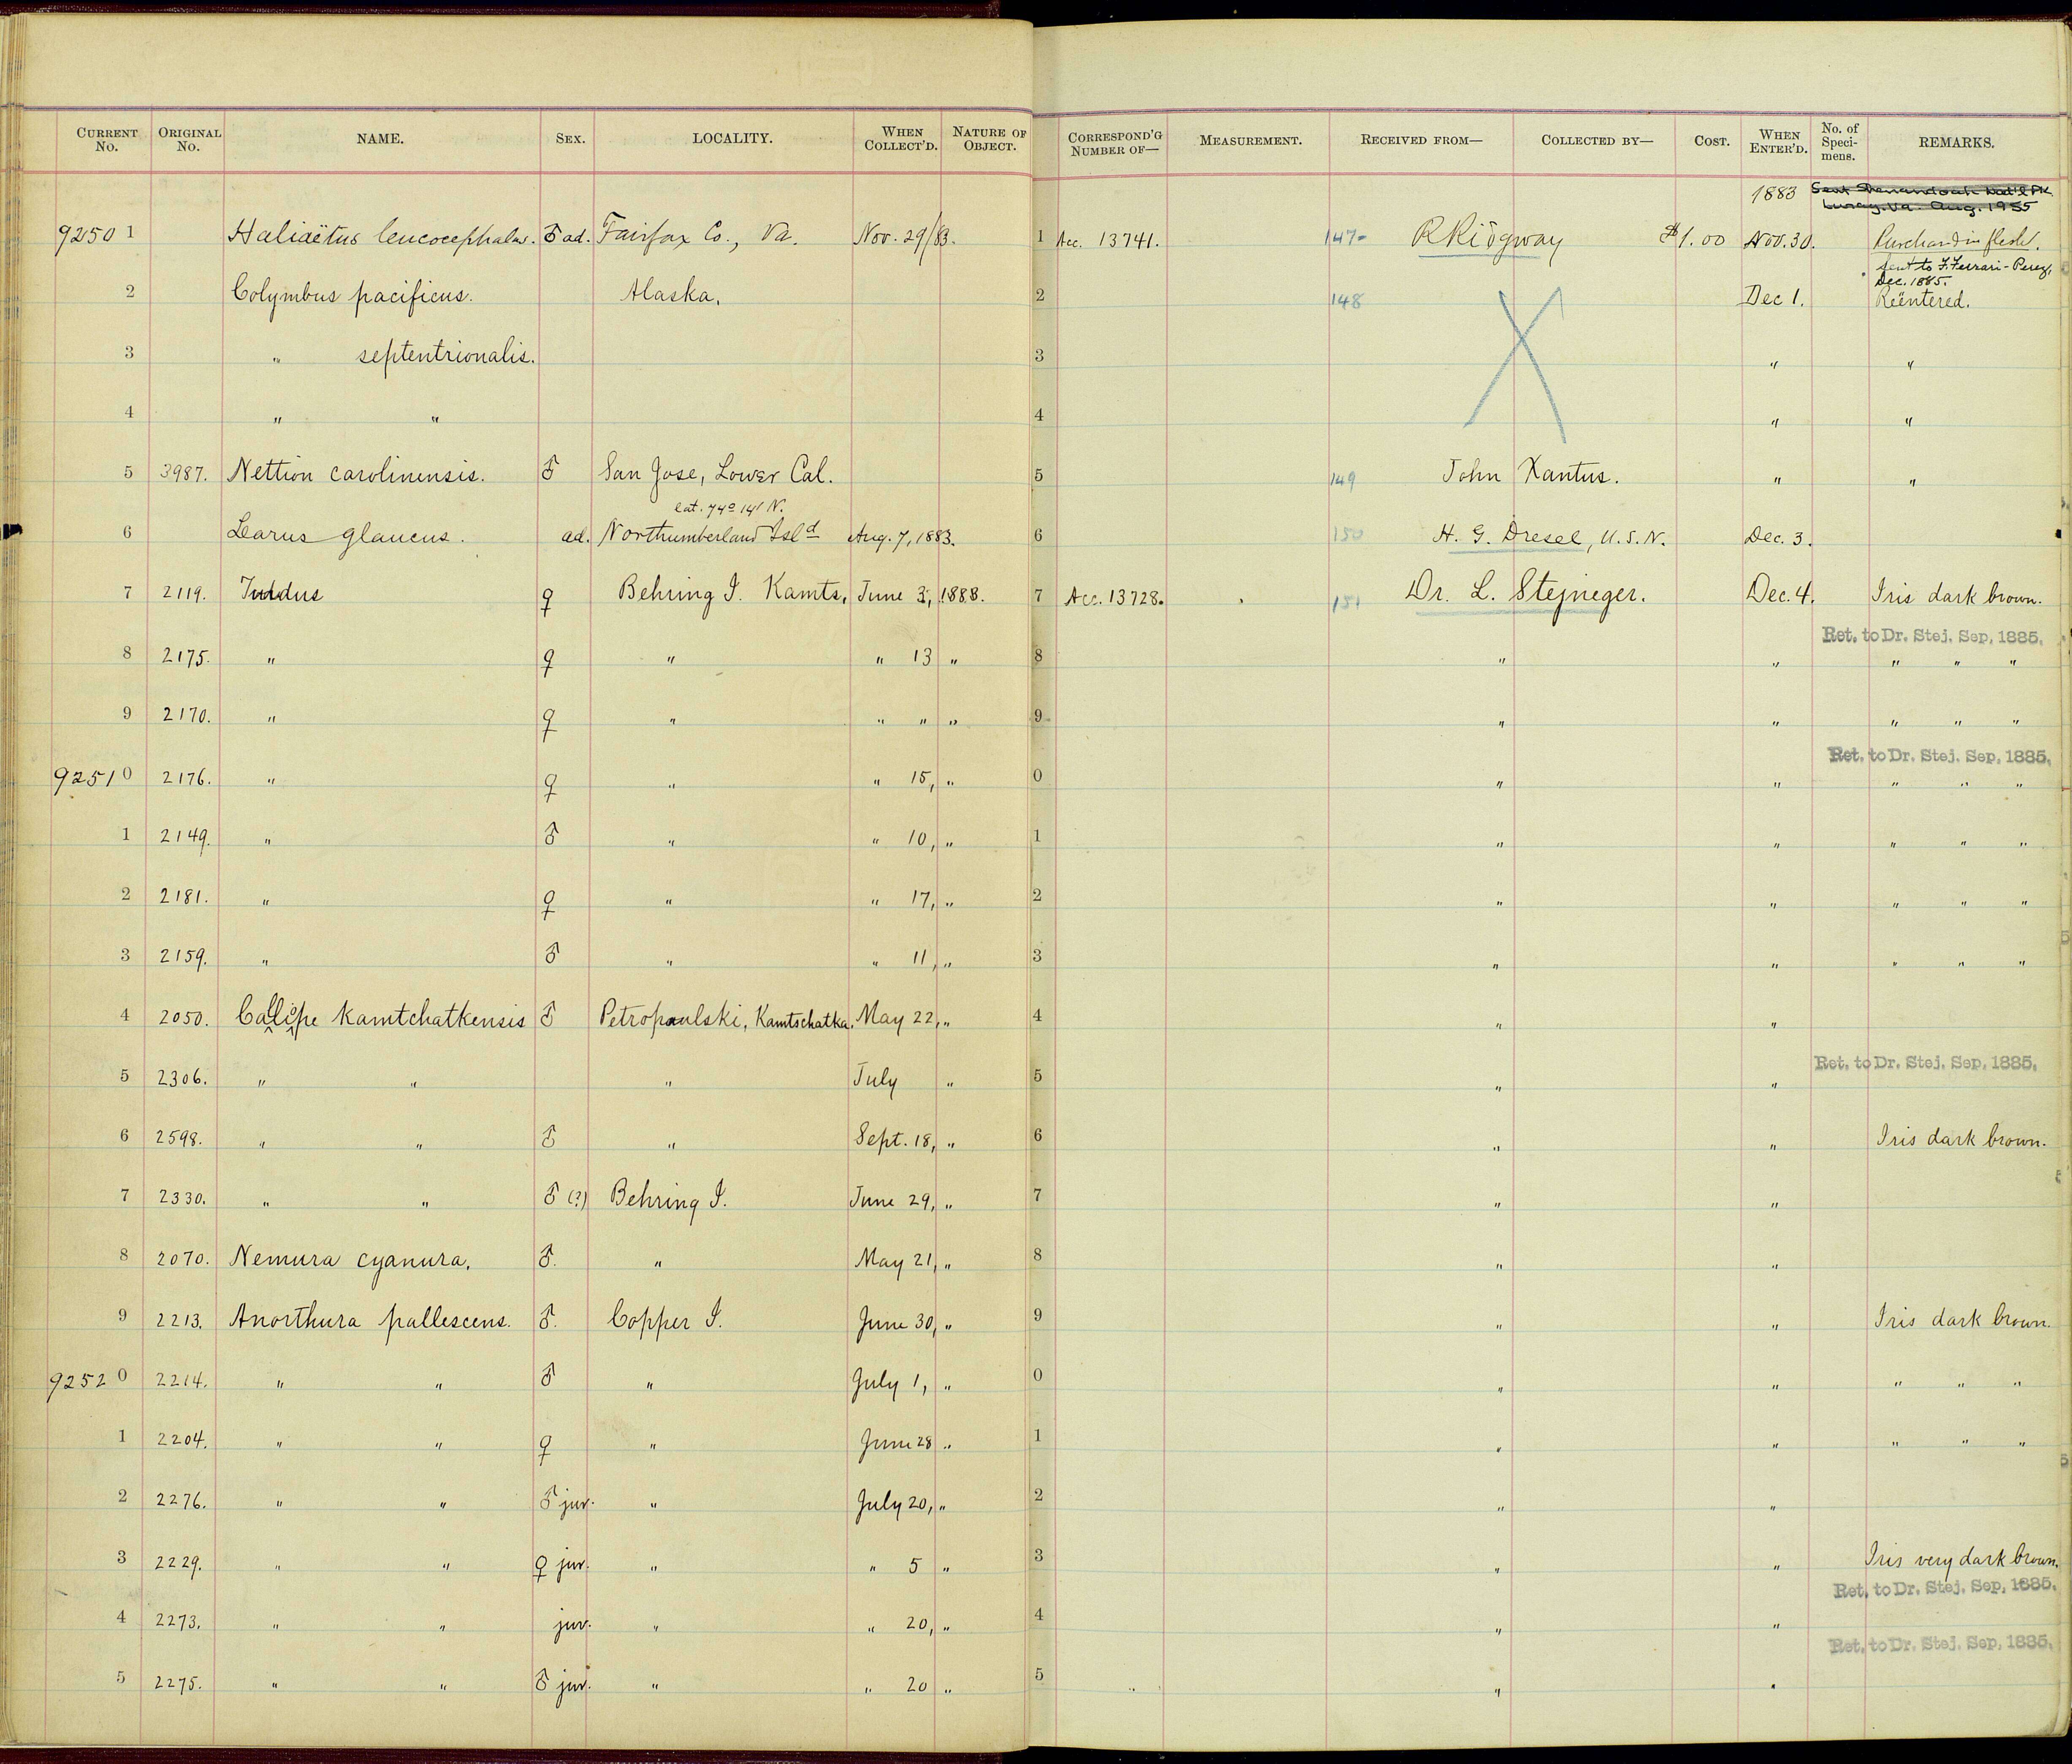 CURRENT No. ORIGINAL No. NAME. SEX. LOCALITY. WHEN COLLECT'D. NATURE OF OBJECT. CORRESPOND'G NUMBER OF— MEASUREMENT. RECEIVED FROM— COLLECTED BY— COST. WHEN ENTER'D. No. of Speci-mens. REMARKS.
1883 Sent Shenandoah Nat'l Pk
Luray, Va. Aug. 1955
92501 Haliaëtus leucocephalus. ♂ ad. Fairfax Co., Va. Nov. 29/83. 1 Acc. 13741. 147- R Ridgway $1.00 Nov. 30. Purchased in flesh.
Sent to F. Ferrari-Perez,
Dec. 1885.
2 Colymbus pacificus. Alaska. 2 148 Dec 1. Reëntered.
3 " septentrionalis. 3 " "
4 " " 4 " "
5 3987. Nettion carolinensis. ♂ San Jose, Lower Cal. 5 149 John Xantus. " "
lat. 74° 14' N.
6 Larus glaucus. ad. Northumberland Isld Aug. 7, 1883. 6 150 H. G. Dresel, U.S.N. Dec. 3.
7 2119. Turdus ♀ Behring I. Kamts. June 3, 1883. 7 Acc. 13728. 151 Dr. L. Stejneger. Dec. 4. Iris dark brown.
Ret. to Dr. Stej. Sep, 1885.
8 2175. " ♀ " " 13 " 8 " " " " "
9 2170. " ♀ " " " " 9 " " " " "
Ret. to Dr. Stej. Sep, 1885.
92510 2176. " ♀ " " 15, " 0 " " " " "
1 2149. " ♂ " " 10, " 1 " " " " "
2 2181. " ♀ " " 17, " 2 " " " " "
3 2159. " ♂ " " 11, " 3 " " " " "
4 2050. Calliope Kamtchatkensis ♂ Petropaulski, Kamtschatka. May 22, " 4 " "
Ret. to Dr. Stej. Sep, 1885.
5 2306. " " " July " 5 " "
6 2598. " " ♂ " Sept. 18, " 6 " " Iris dark brown.
7 2330. " " ♂ (?) Behring I. June 29, " 7 " "
8 2070. Nemura cyanura. ♂. " May 21, " 8 " "
9 2213. Anorthura pallescens. ♂. Copper I. June 30, " 9 " " Iris dark brown.
92520 2214. " " ♂ " July 1, " 0 " " " " "
1 2204. " " ♀ " June 28 " 1 " " " " "
2 2276. " " ♂ juv. " July 20, " 2 " "
3 2229. " " ♀ juv. " " 5 " 3 " " Iris very dark brown.
Ret. to Dr. Stej. Sep, 1885.
4 2273. " " juv. " " 20, " 4 " "
Ret. to Dr. Stej. Sep, 1885.
5 2275. " " ♂ juv. " " 20 " 5 " "